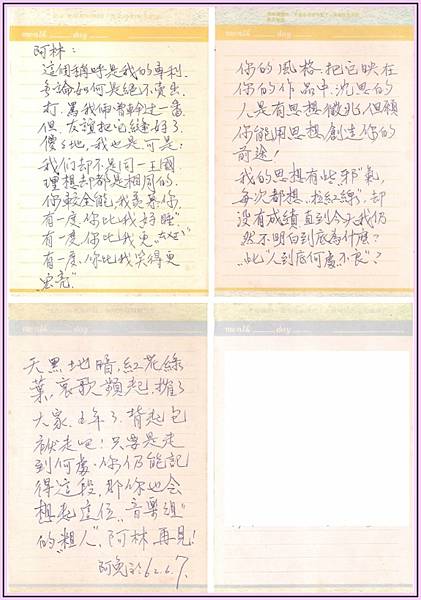 阿林：
這個稱呼是我的專利.
無論如何是絕不賣出.
打.罵我倆曾幹过一番.
但.友誼把它縫好了.
傻了地，我也是可是:
我们却不是同一王國.
理想却都是相同的.
你較全能,我羡慕你,
有一度你比我好睡"
有一度.你比我更
有一度.你比我笑得更
宏亮".
你的風格.把它映在
你的作品中.沈思的
人是有思想徵兆,但願
你能用思想創造你的
前途！
我的思想有些邪"氣,
每次都想"拉紅線".却
沒有成績直到今天我仍
然不明白到底為什麼？
此"人到底何處不良"？
month day
天黑地暗.紅花綠
葉,哀歌頻起.擁了
大家.五年了.背起包
袱走吧！只要是走
到何處.你仍能記
得這段.那你也会
想起這位"音樂組"
的"粗人".阿林再見!
阿兔 62.6.7.
month day